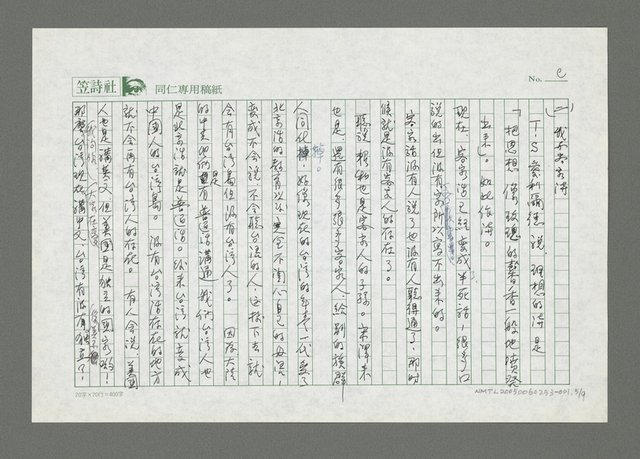 笠詩社 同仁專用稿紙
No. 2
(二) 我和客家詩
T.S愛利阿德說 理想的詩是
「把思想像玫瑰的馨香一般地嗅發
出來。」如此作詩。
現在 客家話已經變成半死語,很多口
說的出但沒有字所以寫不出來的。
客家話沒有人說了也沒有人聽得通了,那時
候就是沒有客家人的存在了。
聽說 也是客家人的子孫。宋澤萊
也是。還有很多很多客家人,給別的族群
人同化掉。好像現在的台灣的年青一代受了
北京話的教育以後 完全不關心自己的母語,
變成不會說不會聽台灣的人,這樣下去就
會有台灣島但沒有台灣人了。 因為大陸
的中共他們是有普通話溝通,我們台灣人也
是北京話就是普通話。後來台灣就變成
中國人的台灣島。 沒有台灣話存在的地方
就不會再有台灣人的存在。 有人會說,美國
人也是講英文,但美國是獨立的國家喲!
那麼台灣現在講中文,台灣有沒有獨立了!
20字×20行=400字
NMTL20050060253-001.5/9